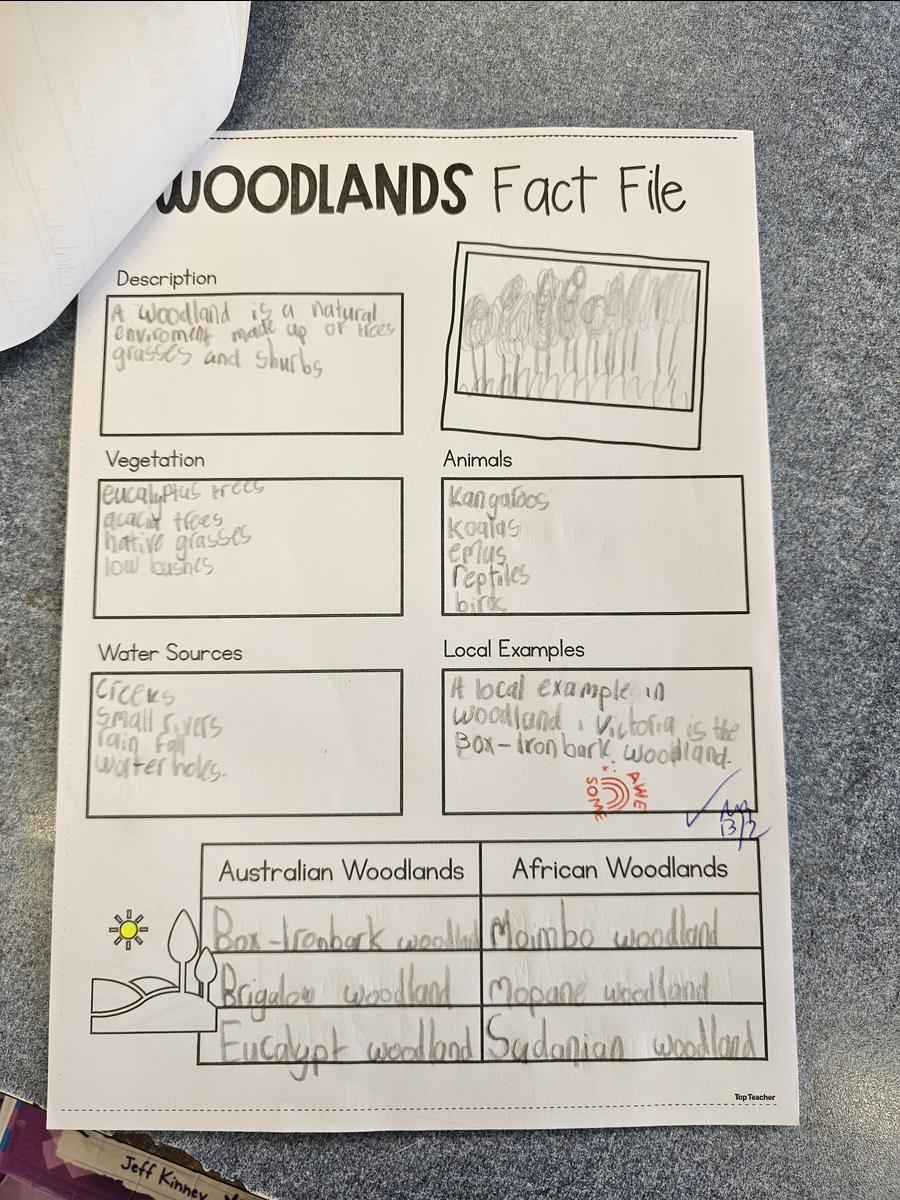 WOODLANDS Fact File
Description
A woodland is a natural
enviroment made up of trees
grasses and shurbs
Vegetation
eucalyptus trees
acacia trees
native grasses
low bushes
Animals
Kangaroos
koalas
emus
reptiles
birds
Water Sources
Creeks
small rivers
rain fall
waterholes.
Local Examples
A local example in
woodland i Victoria is the
Box-Ironbark woodland.
AWE
SOME
13/2
Australian Woodlands
African Woodlands
Box-Ironbark woodland
Moimbo woodland
Brigalow woodland
Mopane woodland
Eucalypt woodland
Sudanian woodland
Top Teacher
Jeff Kinney